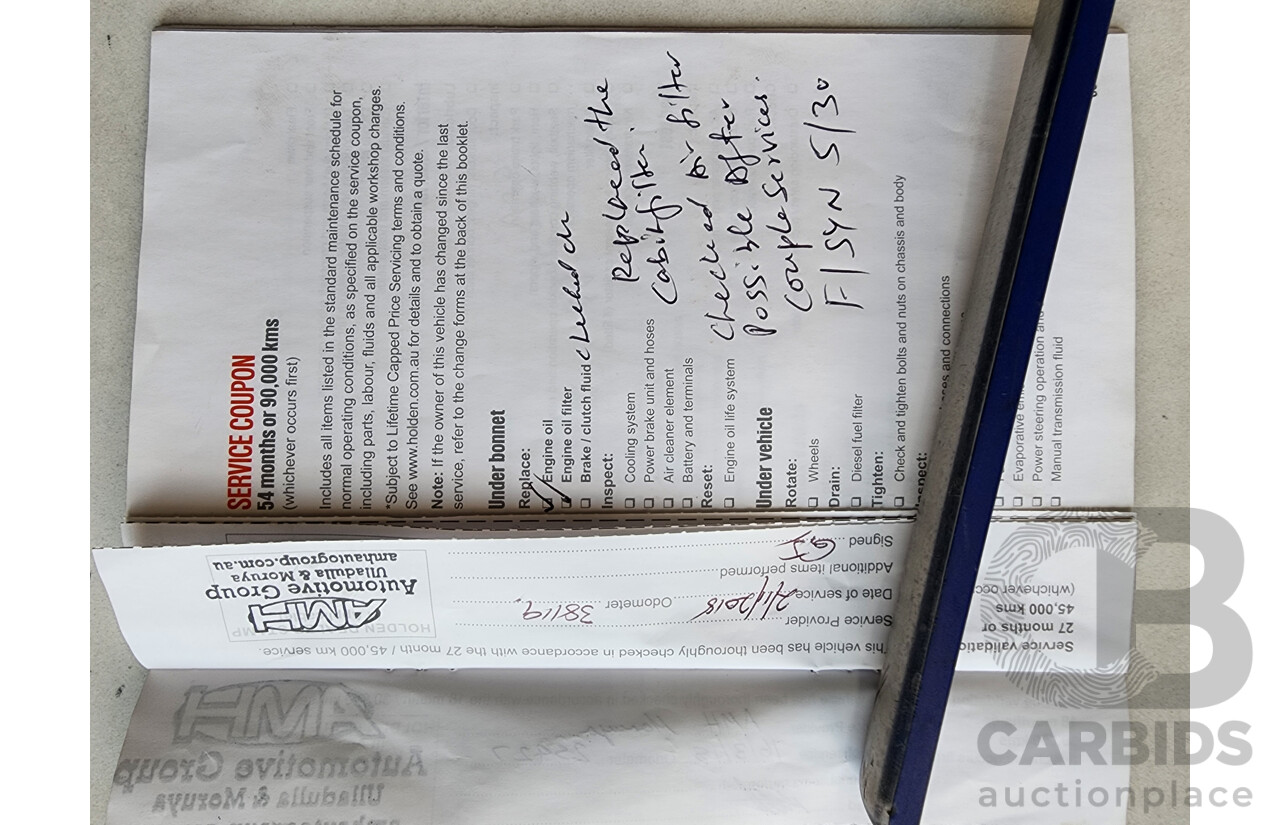 SERVICE COUPON
54 months or 90,000 kms
(whichever occurs first)
Includes all items listed in the standard maintenance schedule for
normal operating conditions, as specified on the service coupon,
including parts, labour, fluids and all applicable workshop charges.
*Subject to Lifetime Capped Price Servicing terms and conditions.
See www.holden.com.au for details and to obtain a quote.
Note: If the owner of this vehicle has changed since the last
service, refer to the change forms at the back of this booklet.
Under bonnet
Replace:
Engine oil
Engine oil filter
Brake / clutch fluid checked
Inspect:
Cooling system
Power brake unit and hoses
Air cleaner element
Battery and terminals
Reset:
Engine oil life system
Replaced the
Cabin filter.
Checked Air filter
possible After
couple services.
F/SYN 5/30
Under vehicle
Rotate:
Wheels
Drain:
Diesel fuel filter
Tighten:
Check and tighten bolts and nuts on chassis and body
and connections
Power steering operation and
Manual transmission fluid
Service validation
27 months or
45,000 kms
(whichever
This vehicle has been thoroughly checked in accordance with the 27 month / 45,000 km service.
Service Provider
Date of service 2/1/2018 Odometer 38119
Additional items performed
Signed
AMH
Automotive Group
Ulladulla & Moruya
amhautogroup.com.au
AMH
Automotive Group
Ulladulla & Moruya
CARBIDS
auctionplace